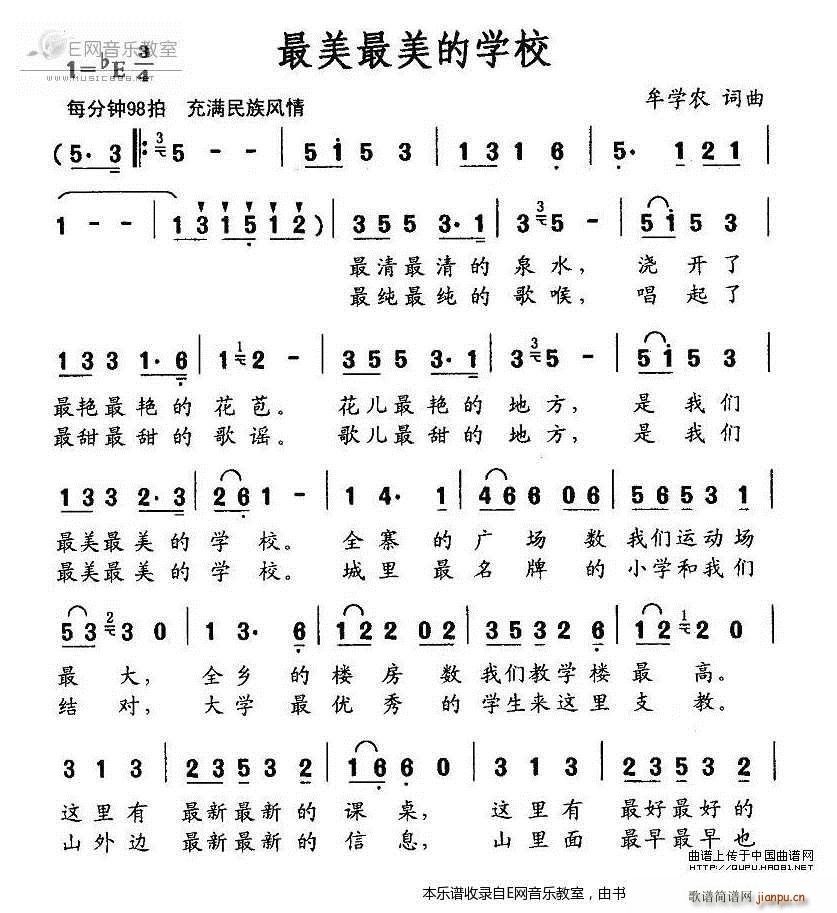 最美最美的学校
E网音乐教室
WWW.MUSIC8888.COM
1=♭E 3/4
每分钟98拍 充满民族风情
牟学农 词曲
(5· 3 ‖: 3 5 - - | 5 i 5 3 | 1 3 1 6 | 5· 1 2 1 |
1 - - | 1 3 1 5 1 2 ) | 3 5 5 3· 1 | 3 3 5 - | 5 i 5 3 |
最清最清的泉水, 浇开了
最纯最纯的歌喉, 唱起了
1 3 3 1· 6 | 1 1 2 - | 3 5 5 3· 1 | 3 3 5 - | 5 i 5 3 |
最艳最艳的花苞。 花儿最艳的地方, 是我们
最甜最甜的歌谣。 歌儿最甜的地方, 是我们
1 3 3 2· 3 | 2 6 1 - | 1 4· 1 | 4 6 6 0 6 | 5 6 5 3 1 |
最美最美的学校。 全寨的广场数我们运动场
最美最美的学校。 城里最名牌的小学和我们
5 3 2 3 0 | 1 3· 6 | 1 2 2 0 2 | 3 5 3 2 6 | 1 2 1 2 0 |
最大, 全乡的楼房数我们教学楼最高。
结对, 大学最优秀的学生来这里支教。
3 1 3 | 2 3 5 3 2 | 1 6 6 0 | 3 1 3 | 2 3 5 3 2 |
这里有 最新最新的课桌, 这里有 最好最好的
山外边 最新最新的信息, 山里面 最早最早也
曲谱上传于中国曲谱网
HTTP://QUPU.HAO81.NET
本乐谱收录自E网音乐教室，由书
歌谱简谱网
jianpu.cn